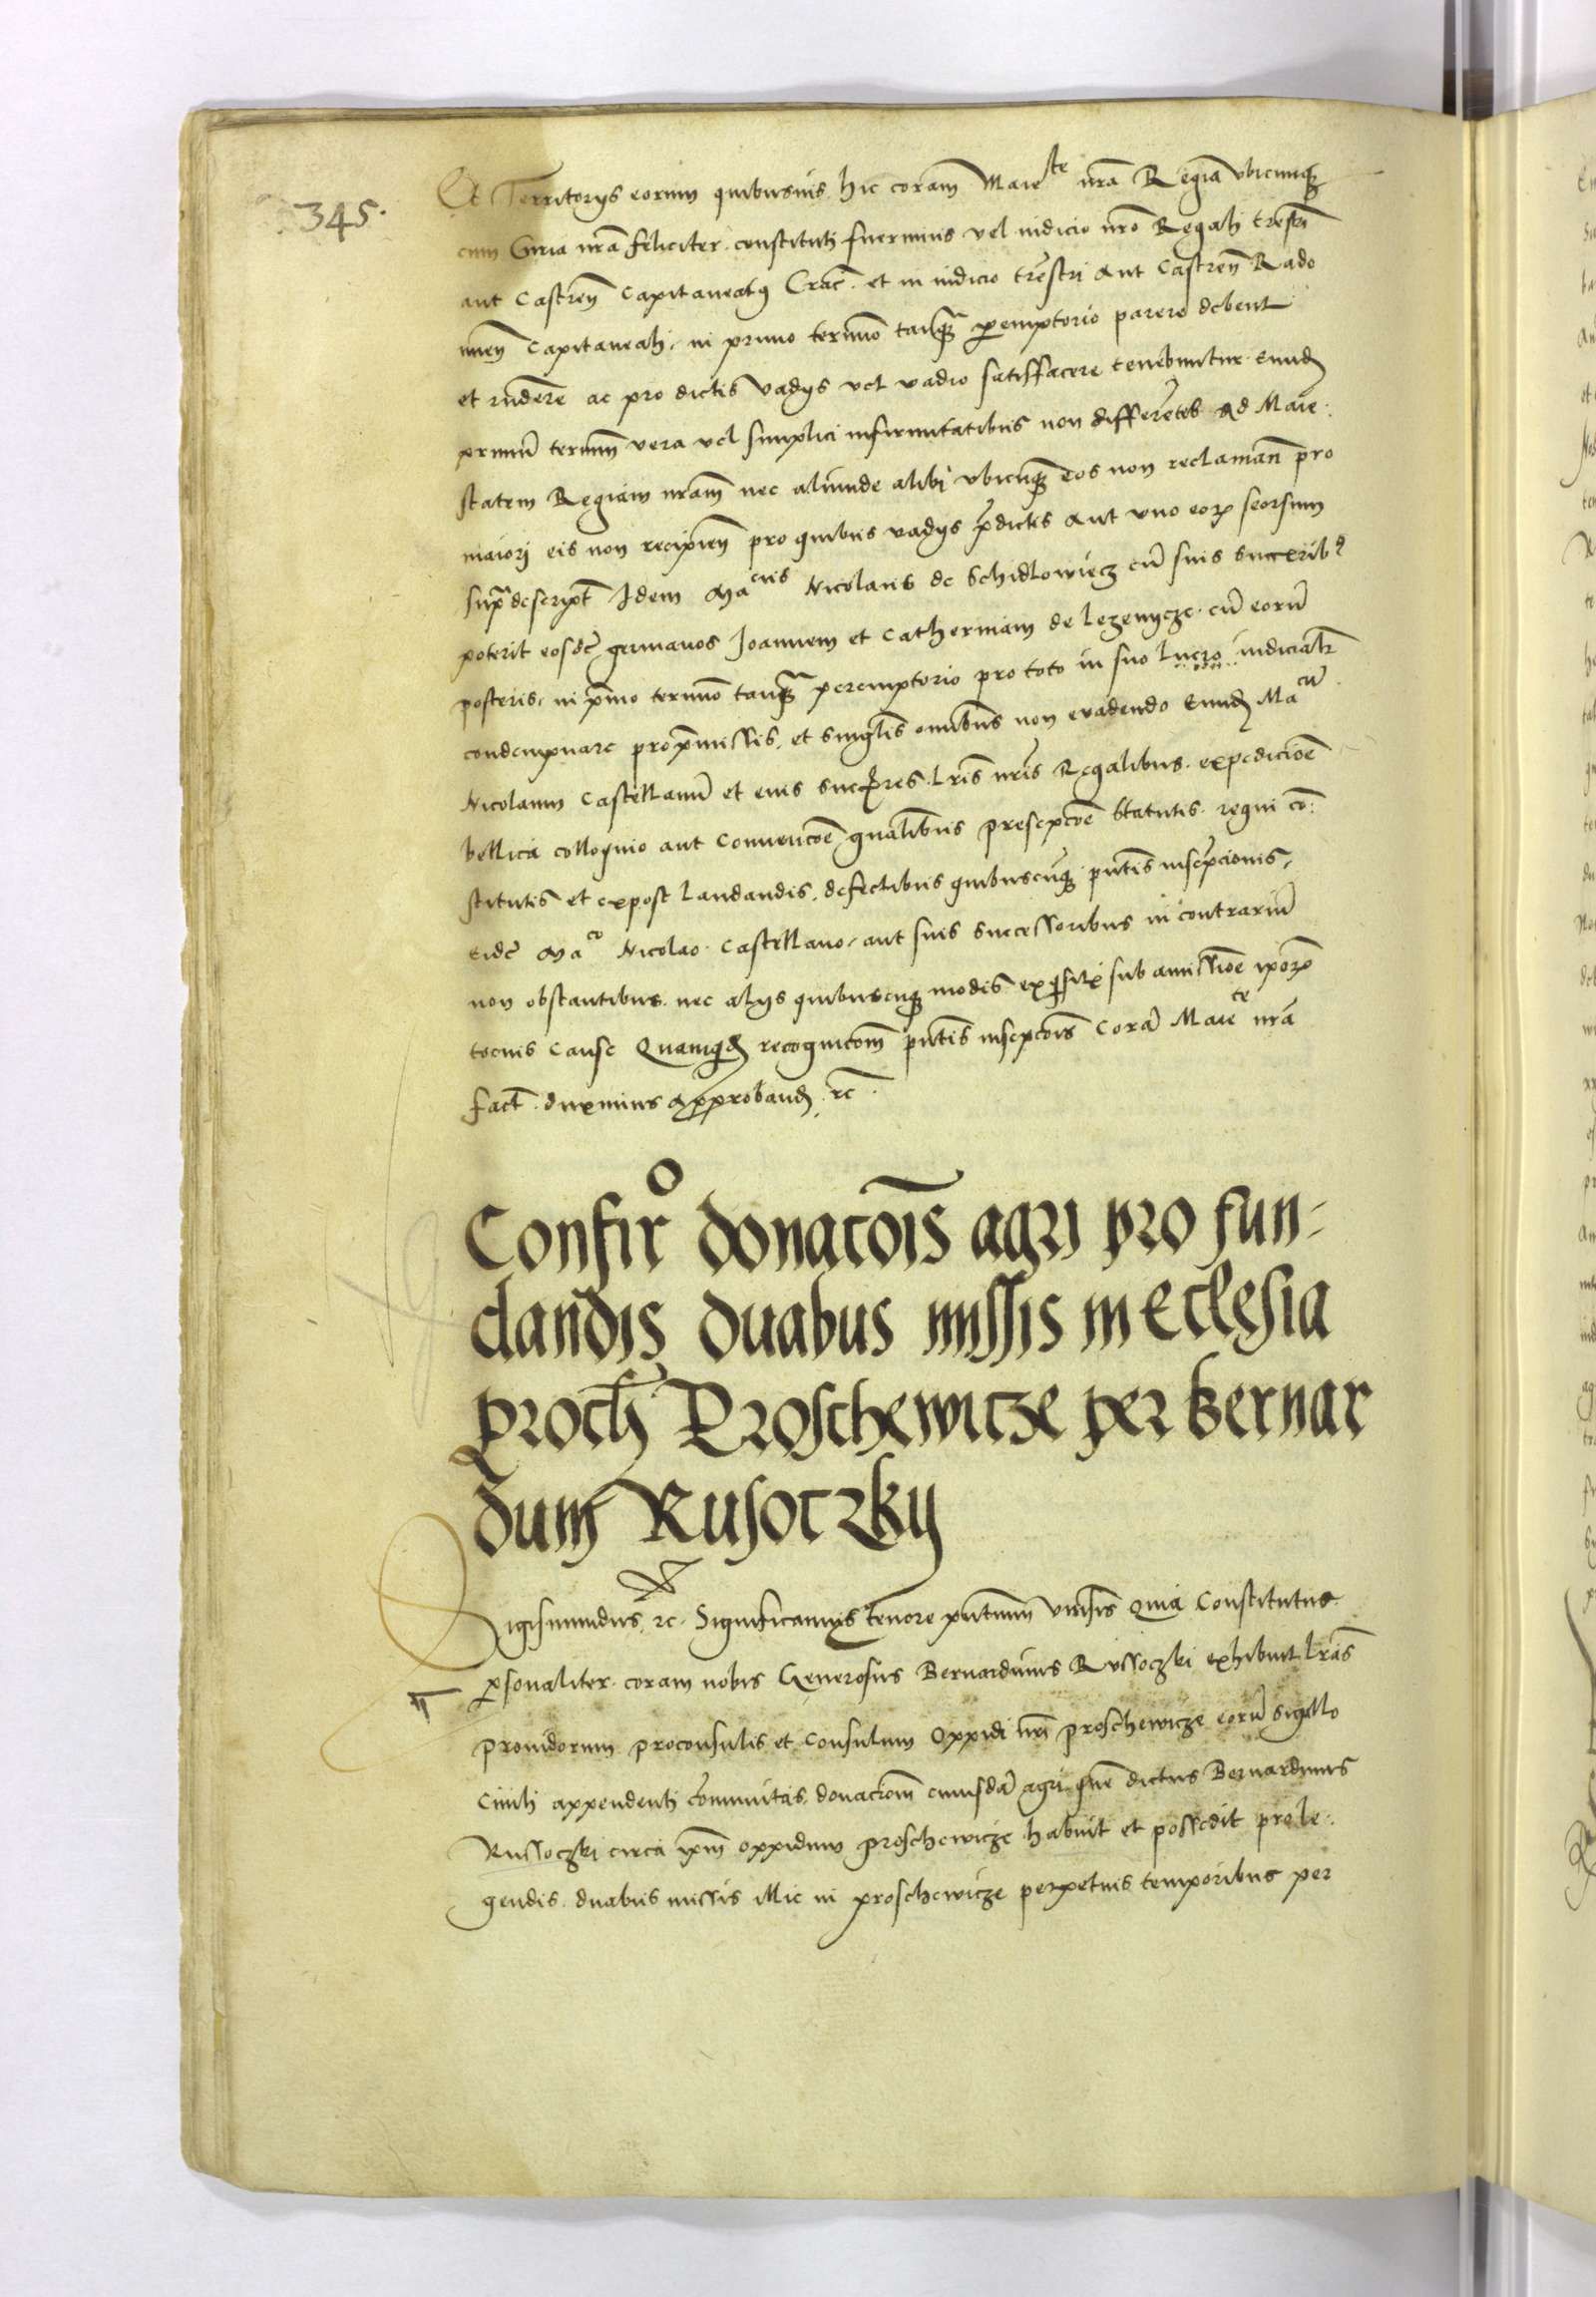 345.
Et Territorys eorum quibusuis hic coram Maie^te nrã Regia vbicunq
cum Curia nrã feliciter constituti fuerimus vel iudicio nrõ Regali trestri
aut Castren Capitaneatus Crac. et in iudicio trestri aut Castren Rado
mien Capitaneali in primo termino tanq̃ peremptorio parere debent
et rndere ac pro dictis vadys vel vadio satisffacere tenebuntur eund
primũ terminũ vera vel simplici infirmitatibus non differetes ad Maie:
statem Regiam nram nec aliunde alibi vbicunq eos non reclaman pro
maiori eis non recipien pro quibus vadys p̃dictis aut vno eorꝝ seorsum
sup̃descript Idem Ma^cus Nicolaus de Schidlowiecz cũ suis succerib9
poterit eosdẽ germanos Joannem et Catherinam de Lezenycze cũ eorũ
posteris in p̃mo termino tanq̃ peremptorio pro toto in suo lucro iudicialr
condempnare pro p̃missis et singlis omibus non euadendo eund Ma^cũ
Nicolaum Castellanũ et eius succres lris nris Regalibus expedicioẽ
bellica colloquio aut conuencoẽ qualibus prescpcoẽ Statutis regni cõ:
stitutis et expost laudandis defectibus quibuscunq pntis inscrpcionis
eidẽ Ma^co Nicolao Castellano aut suis successoribus in contrariũ
non obstantibus nec alys quibuscunq modis exqsitis sub amissioẽ ipoꝝ
tocius Cause Quamqd recognicom pntis inscpcois Corã Maie^te nrã
fact duximus approband rc.
Confir^o donacõis agri pro fun=
dandis duabus missis in Eclesia
proch Proschewicze per Bernar
dum Rusoczky
Sigismundus rc. Significamus tenore pntium vnisis Quia Constitutus
psonaliter coram nobis Generosus Bernardinus Russoczki exhibuit lrãs
prouidorum proconsulis et Consulum Oppidi nri proschewicze eorũ sigillo
Ciuili appendenti cõmunitas donaciom cuiusdã agri quẽ dictus Bernardinus
Russoczki circa ipm oppidum proschewicze habuit et possedit pro le:
gendis duabus missis illic in proschewicze perpetuis temporibus per